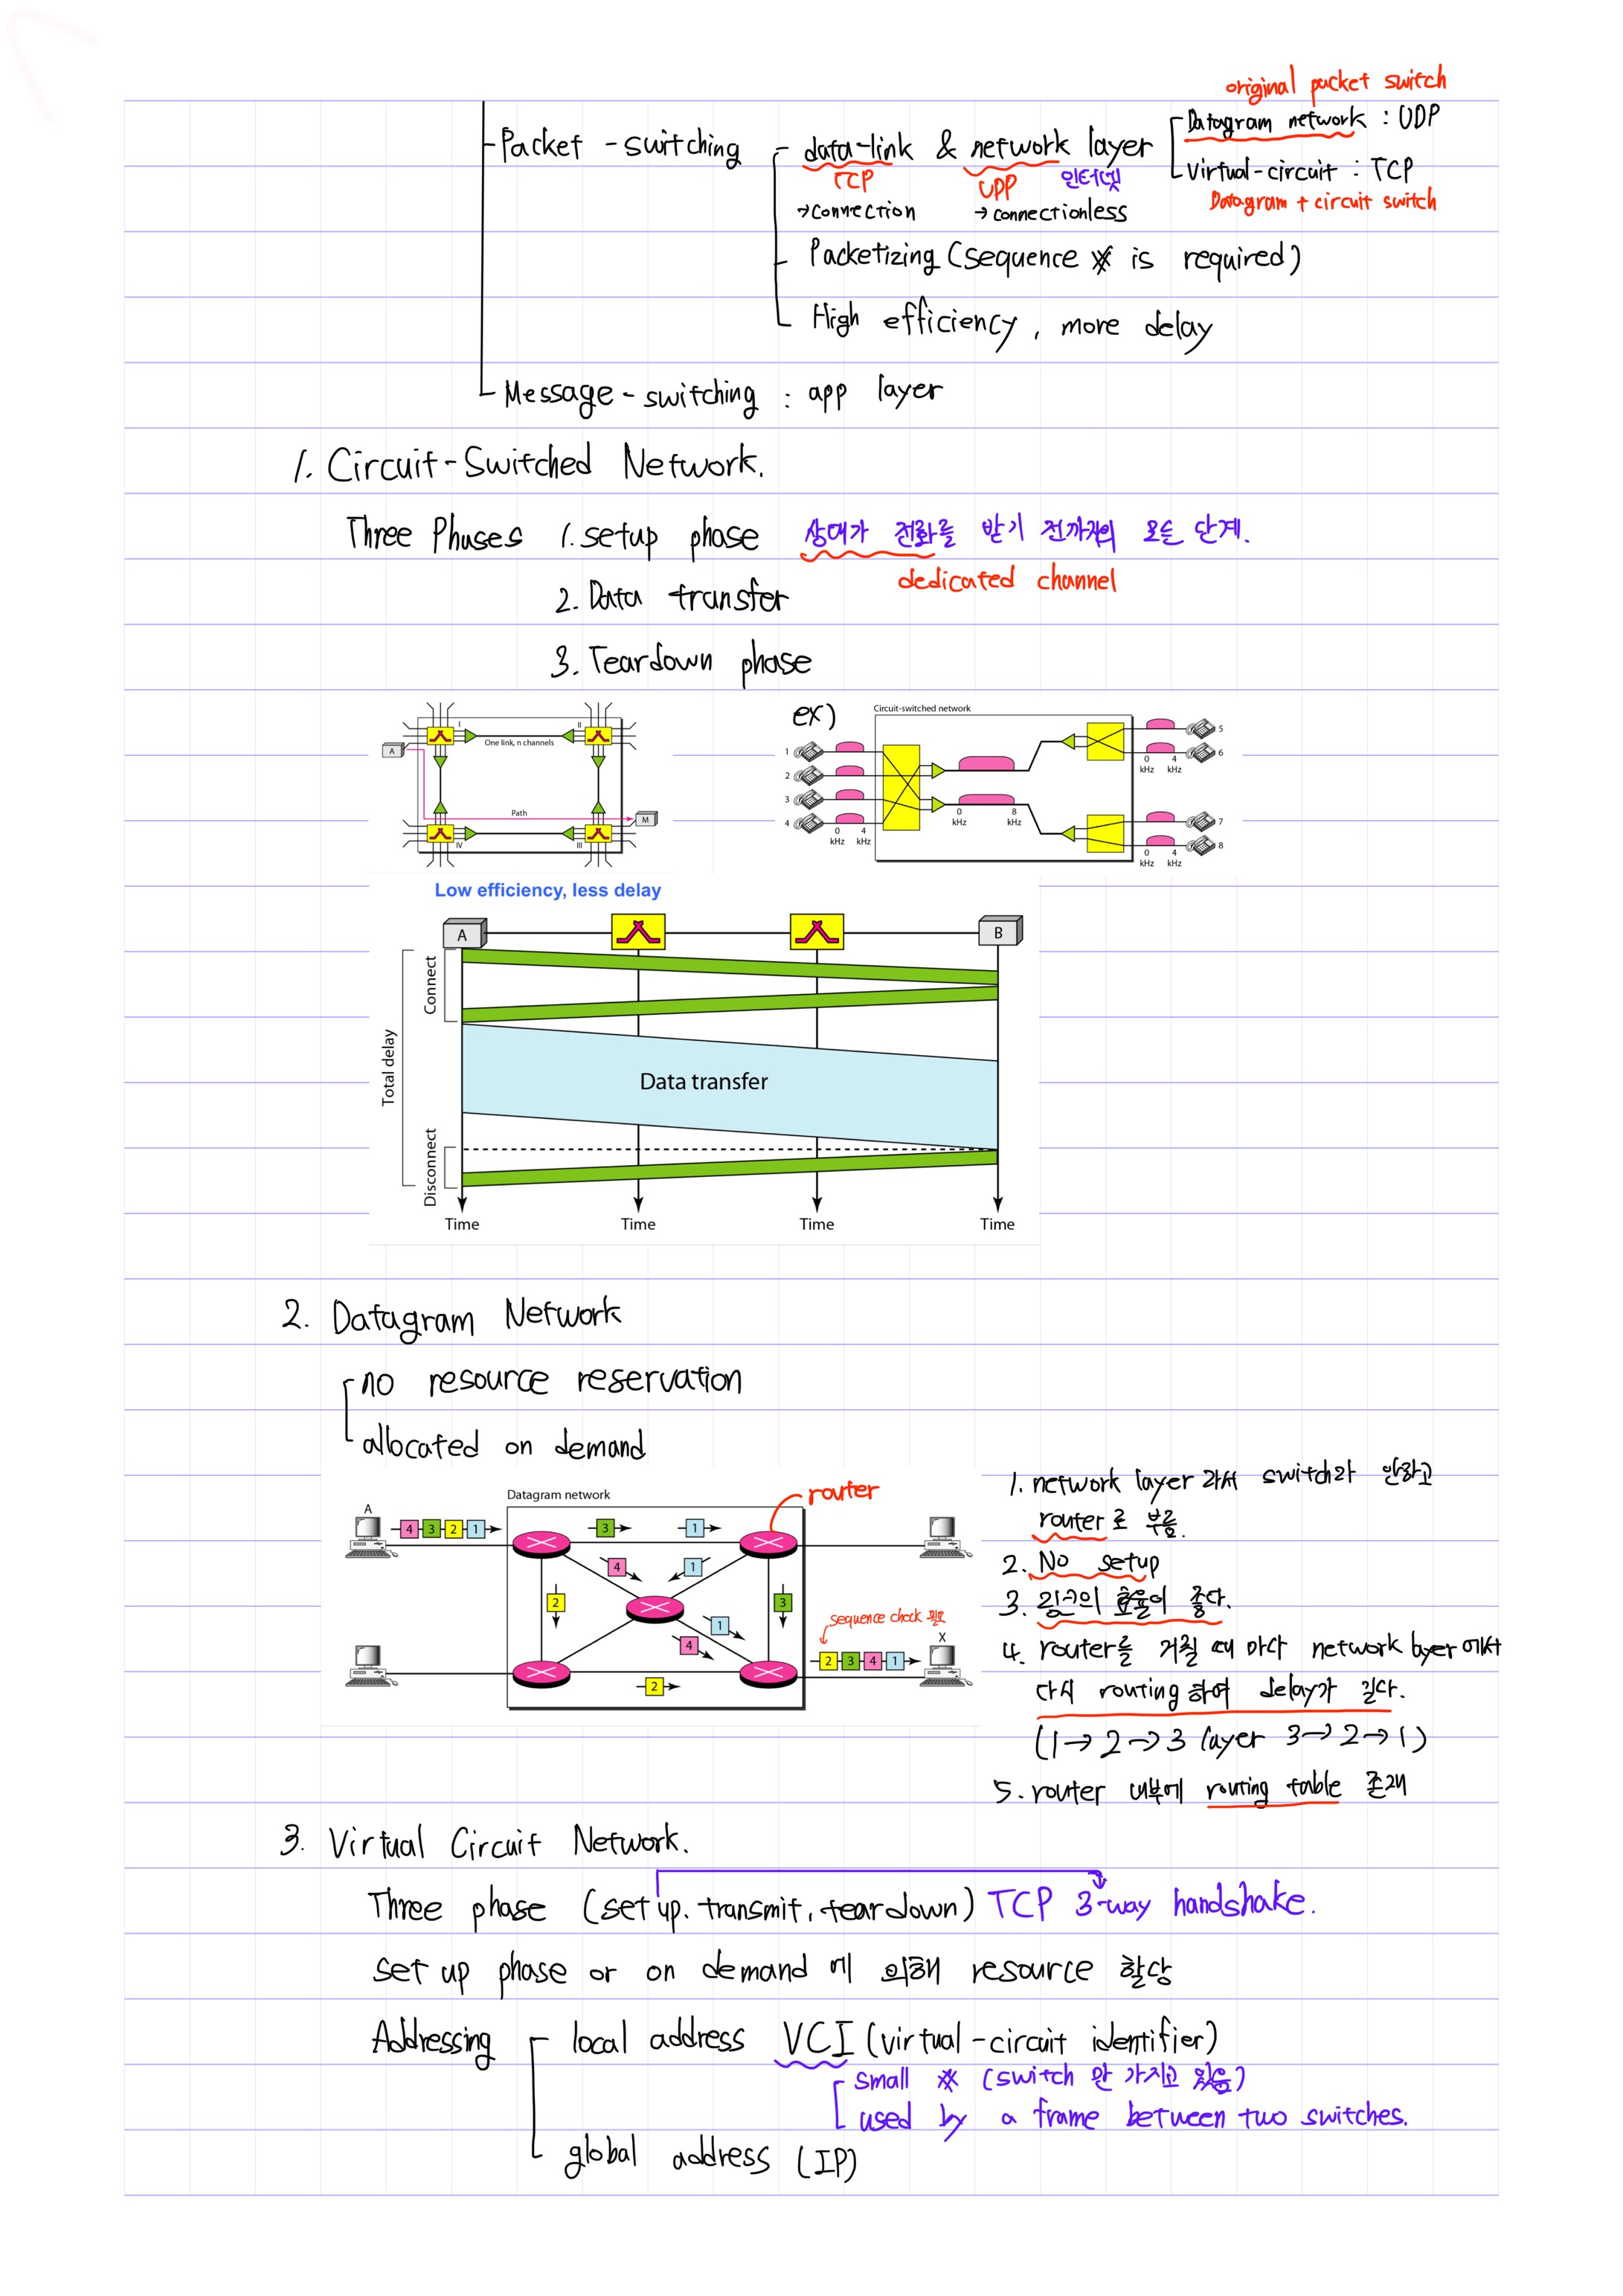 original packet switch
Packet - switching
data-link & network layer
Datagram network : UDP
TCP
UDP
인터넷
Virtual-circuit : TCP
→connection
→connectionless
Datagram + circuit switch
Packetizing (sequence # is required)
High efficiency, more delay
Message - switching : app layer
1. Circuit-Switched Network.
Three Phases 1. setup phase 상대가 전화를 받기 전까지의 모든 단계.
dedicated channel
2. Data transfer
3. Teardown phase
I
II
One link, n channels
A
Path
M
IV
III
ex)
Circuit-switched network
1
2
3
4
0 4
kHz kHz
0 8
kHz kHz
5
6
0 4
kHz kHz
7
8
0 4
kHz kHz
Low efficiency, less delay
A
B
Connect
Total delay
Data transfer
Disconnect
Time Time Time Time
2. Datagram Network
no resource reservation
allocated on demand
Datagram network
router
A
4 3 2 1
3
1
4
1
2
3
1
4
2
sequence check 필요
2 3 4 1
X
1. network layer 라서 switch라 안하고
router로 부름.
2. No setup
3. 링크의 효율이 좋다.
4. router를 거칠 때 마다 network layer에서
다시 routing 하여 delay가 길다.
(1→2→3 layer 3→2→1)
5. router 내부에 routing table 존재
3. Virtual Circuit Network.
Three phase (set up. transmit, teardown) TCP 3-way handshake.
set up phase or on demand 에 의해 resource 할당
Addressing
local address VCI (virtual-circuit identifier)
small # (switch 만 가지고 있음)
used by a frame between two switches.
global address (IP)